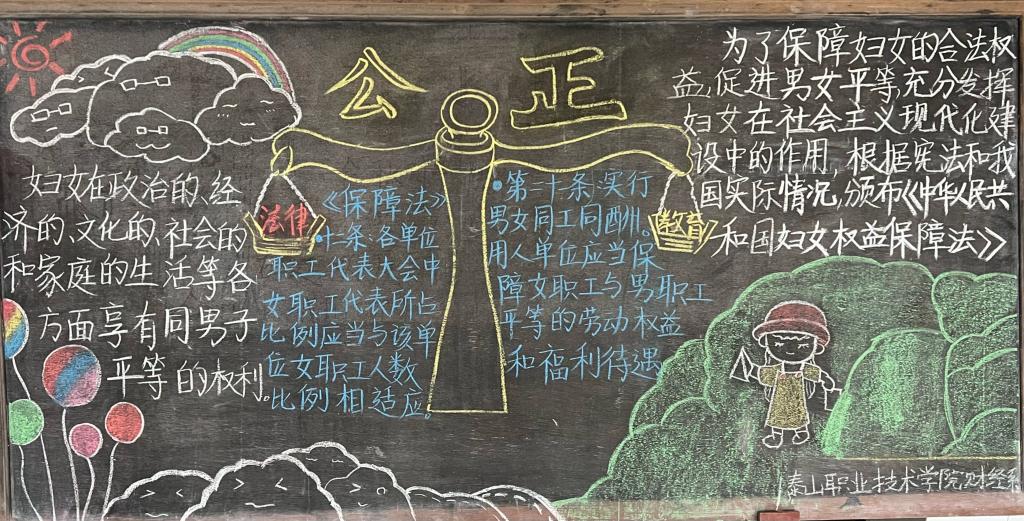 公正
妇女在政治的、经
济的、文化的、社会的
和家庭的生活等各
方面享有同男子
平等的权利。
法律
《保障法》
十一条:各单位
职工代表大会中
女职工代表所占
比例应当与该单
位女职工人数
比例相适应。
第二十条:实行
男女同工同酬。
用人单位应当保
障女职工与男职工
平等的劳动权益
和福利待遇
教育
为了保障妇女的合法权
益,促进男女平等,充分发挥
妇女在社会主义现代化建
设中的作用,根据宪法和我
国实际情况,颁布《中华人民共
和国妇女权益保障法》
泰山职业技术学院财经系